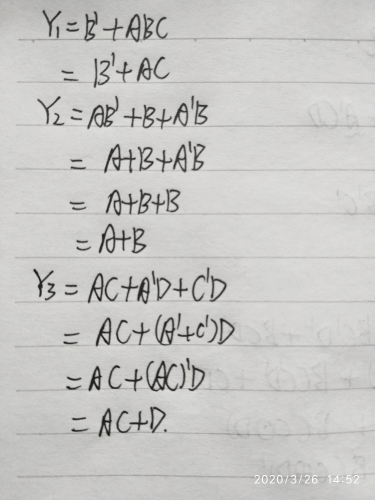 Y₁ = B' + ABC
= B' + AC
Y₂ = AB' + B + A'B
= A+B+A'B
= A+B+B
= A+B
Y₃ = AC+A'D+C'D
= AC+(A'+C')D
= AC+(AC)'D
= AC+D.
2020/3/26 14:52